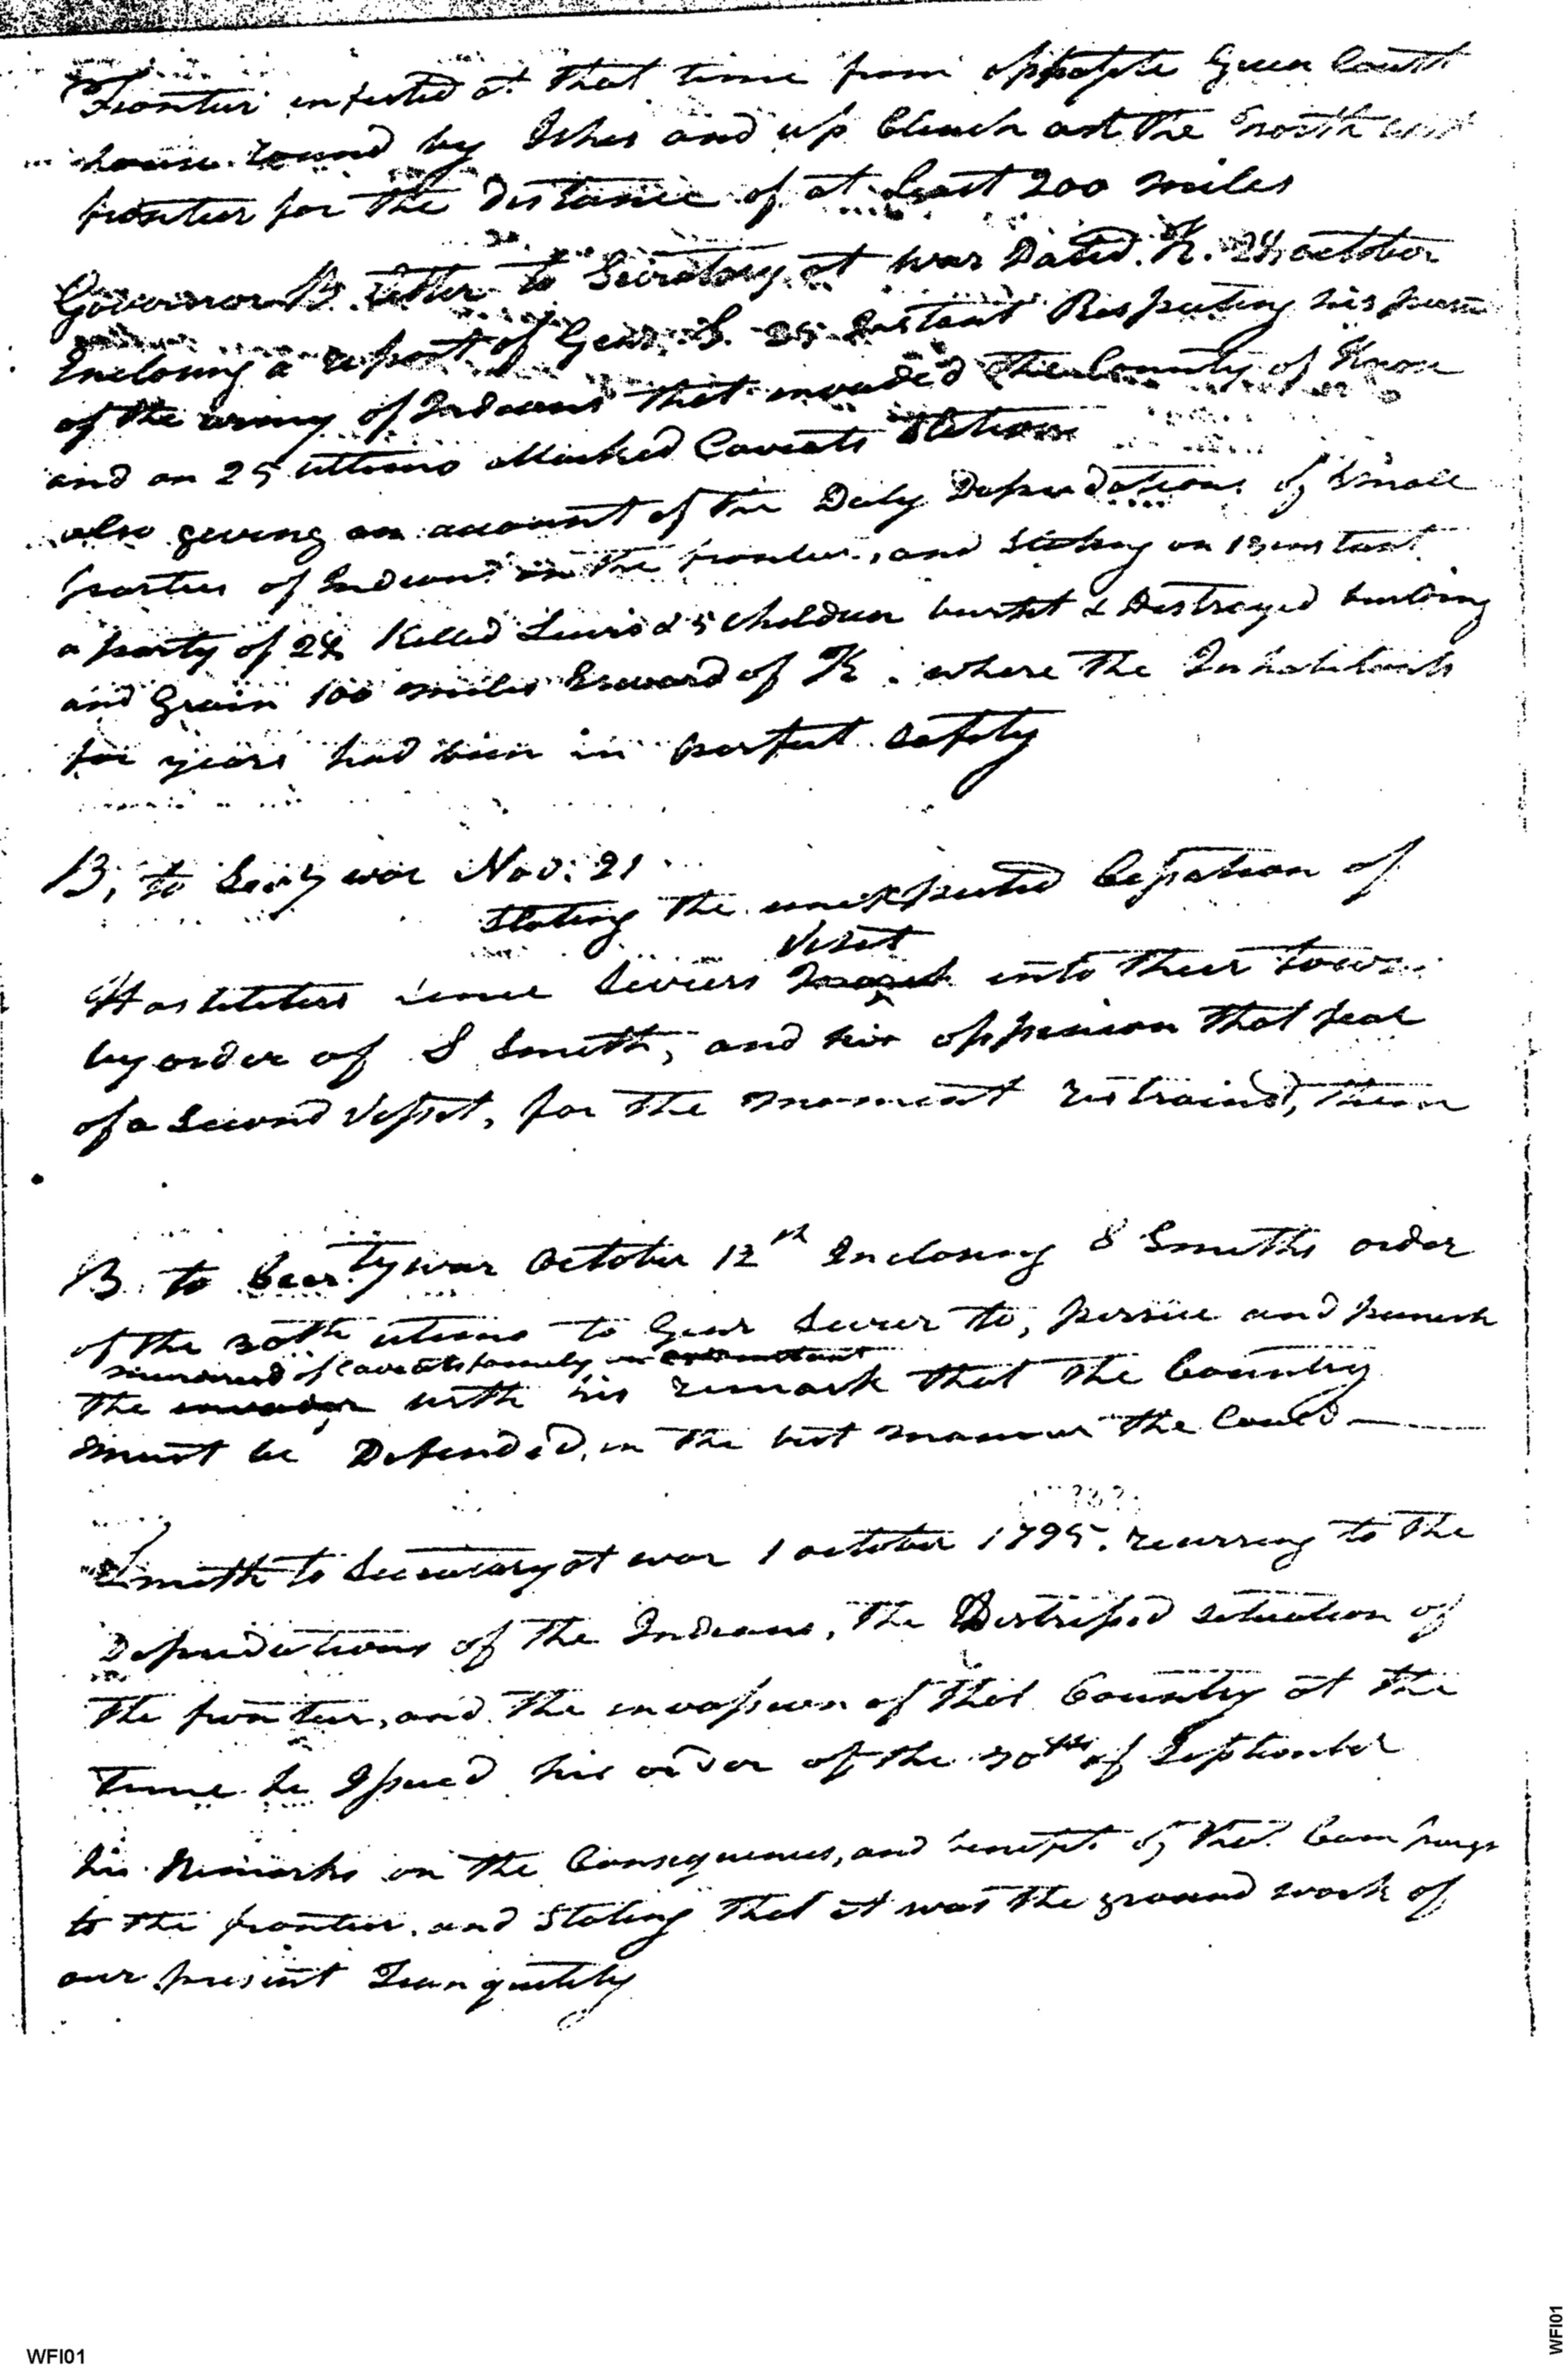 Frontier infested at that time from opposite Green Court
house round by Ishes and up Clinch art the North west
frontier for the distance of at least 200 miles
Governor B. letter to Secretary at war Dated. K. 24 october
Inclosing a report of Genr. S. 25 Instant Respecting his pursu
of the army of Indians that invaded the County of Knox
and on 25 ultimo attacked Caveats Station
also giving an account of the Daly Depredations of Small
parties of Indians on the frontier, and Stating on 13 instant
a party of 28 Killed Lewis & 5 children burnt & Destroyed building
and Grain 100 miles Eseward of K. where the Inhabitants
for years had been in perfect Safety
B, to Secrty war Nov: 21
Stating the unexpected Cessation of
Visit
Hostilities since Seviers into their towns
by order of S Smith, and his oppinion that fear
of a Second Vissit, for the moment restraind, them
B. to Secrty war October 12th Inclosing S Smiths order
of the 30th utimo to Genr Sevier to, persue and punish
murderers of Caveats family
the invader with his remark that the Country
must be Defended, in the best manner the Could
Smith to Secretary at war 1 october 1795. recurring to the
Depredations of the Indians, the Distressed situation of
the frontier, and the invassion of that Country at the
time he Issued his order of the 30th of September
his Remarks on the Consequences, and benefits of that Campaign
to the frontier, and Stating that it was the ground work of
our present Tranquility
WFI01
WFI01